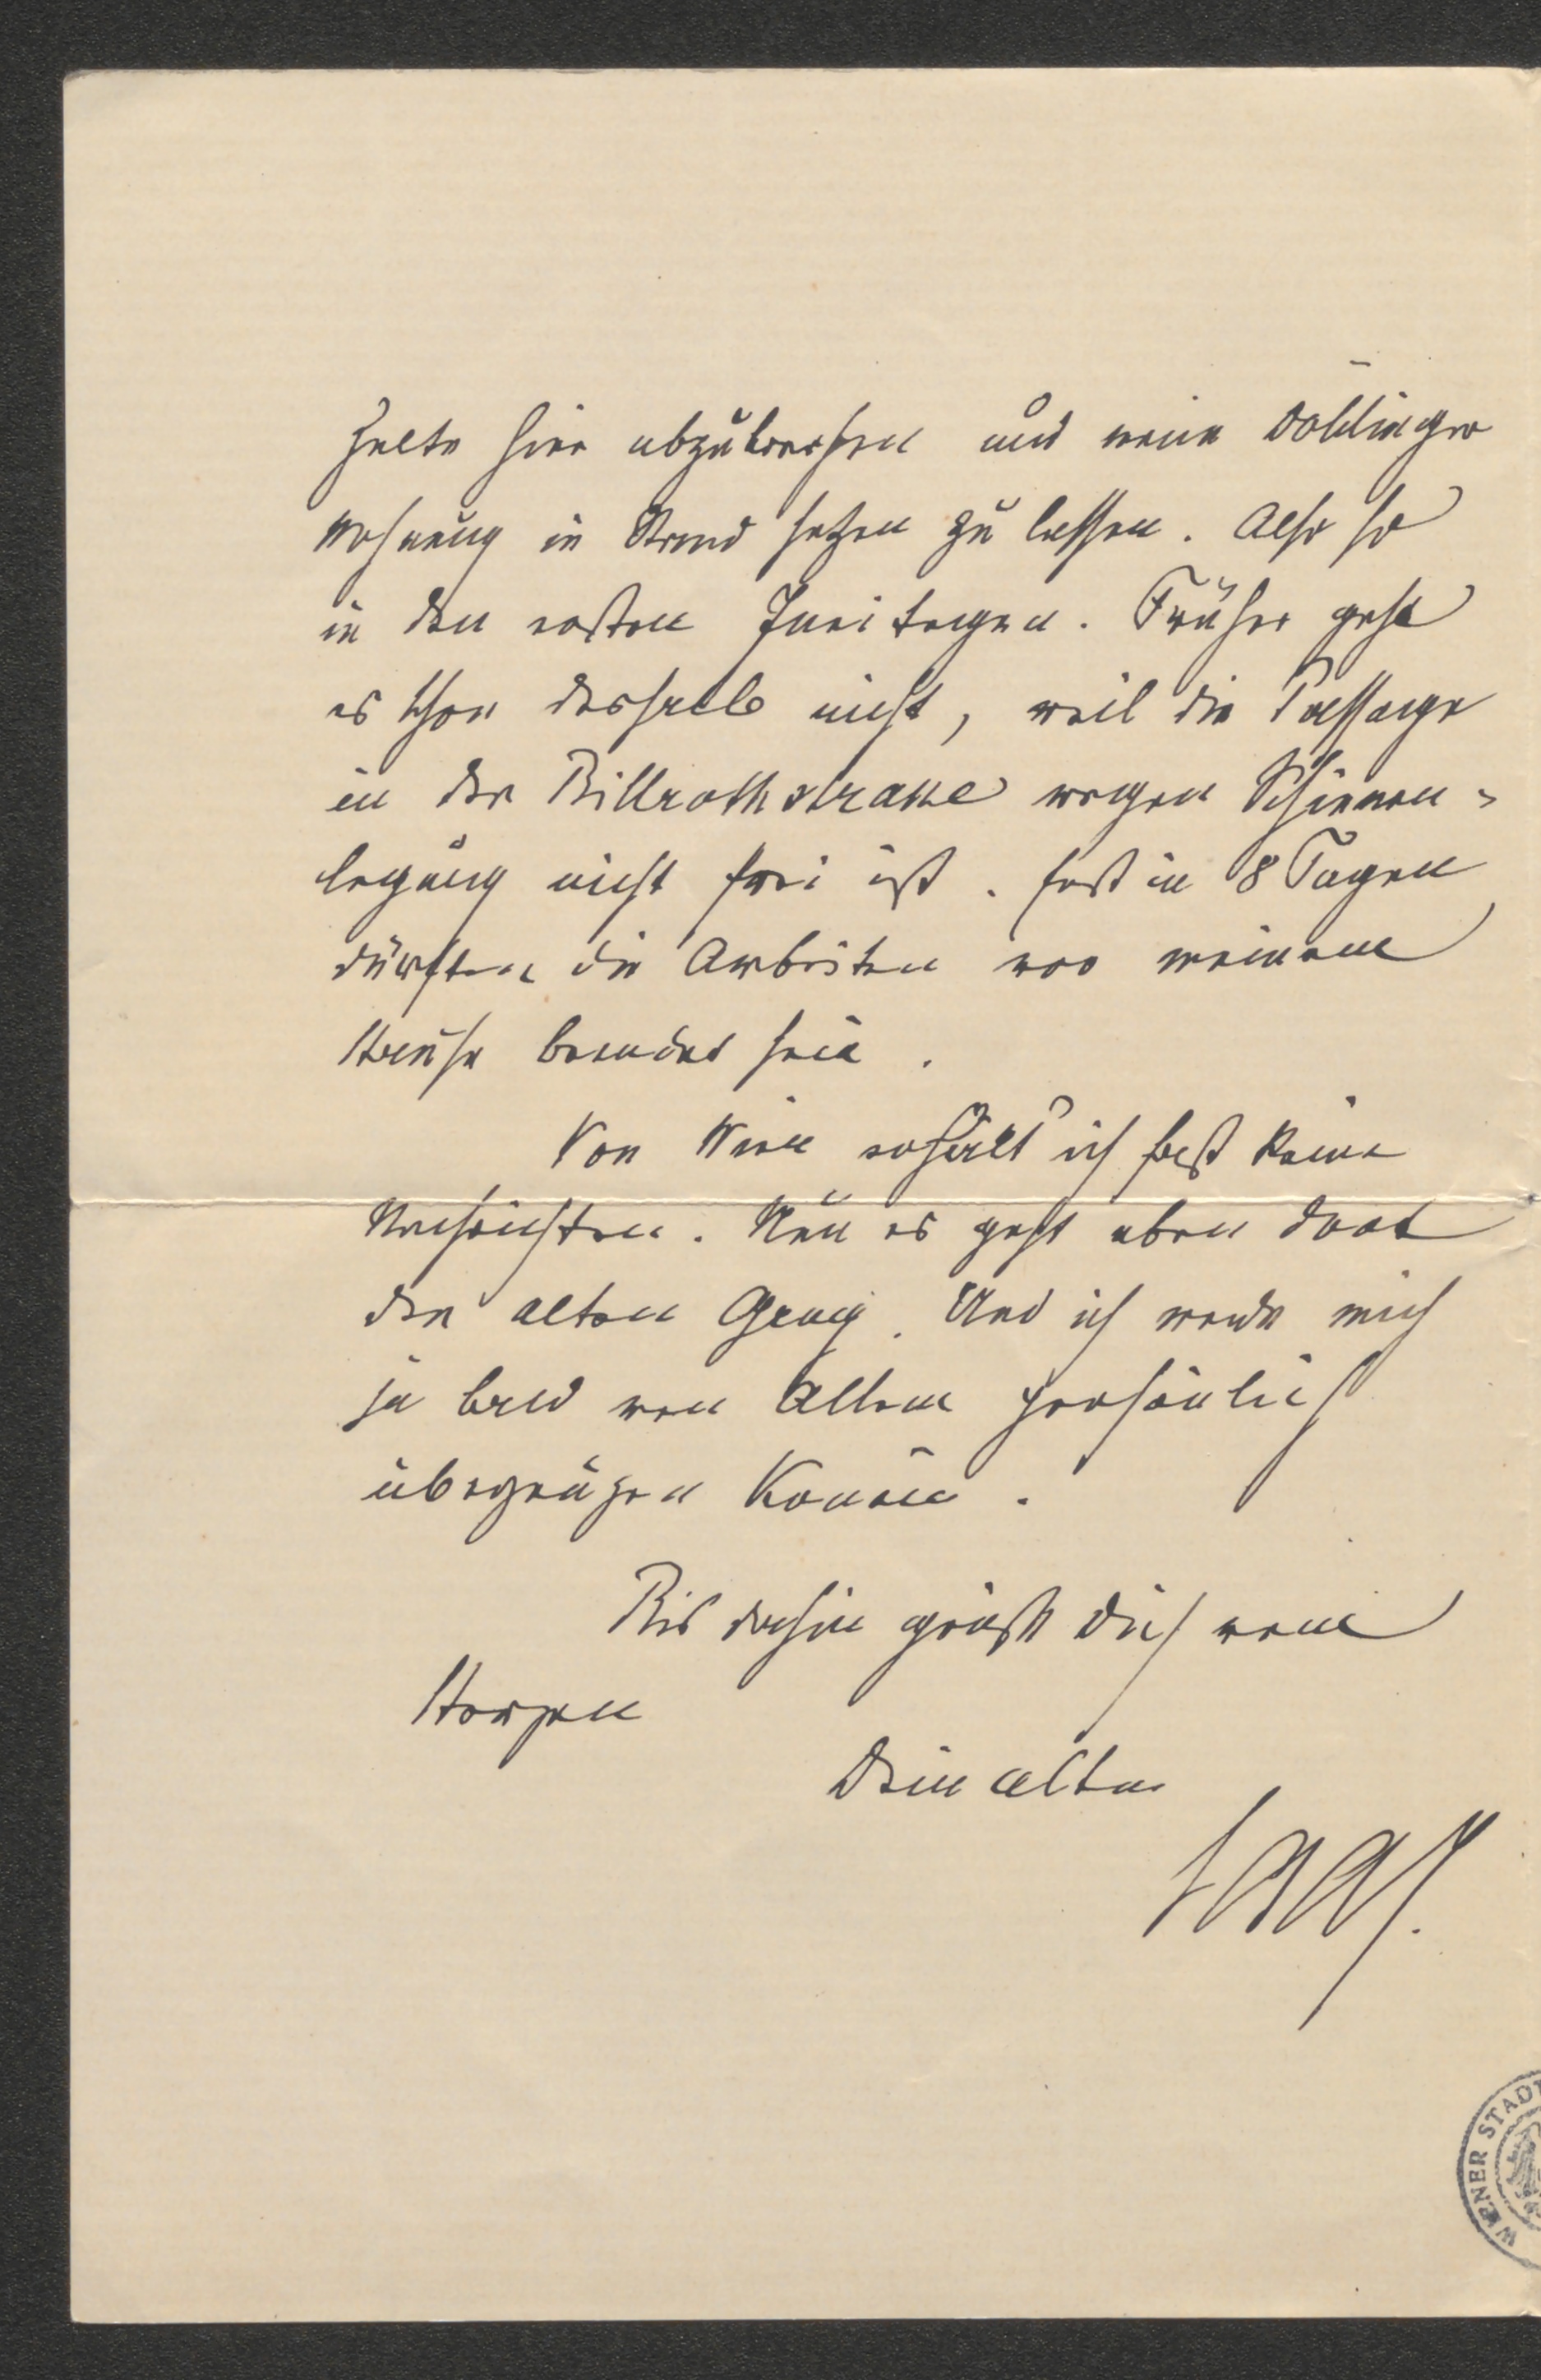 Zelte hier abzubrechen und meine Döblinger
Wohnung in Stand setzen zu lassen. Also so
in den ersten Junitagen. Früher geht
es schon deshalb nicht, weil die Passage
in der Billrothstrasse wegen Schienen-
legung nicht frei ist. Erst in 8 Tagen
dürften die Arbeiten vor meinem
Hause beendet sein.
Von Wien erhalt' ich fast keine
Nachrichten. Nun es geht eben dort
den alten Gang. Und ich werde mich
ja bald von Allem persönlich
überzeugen können.
Bis dahin grüßt Dich von
Herzen
Dein alter
Saar.
WIENER STADT